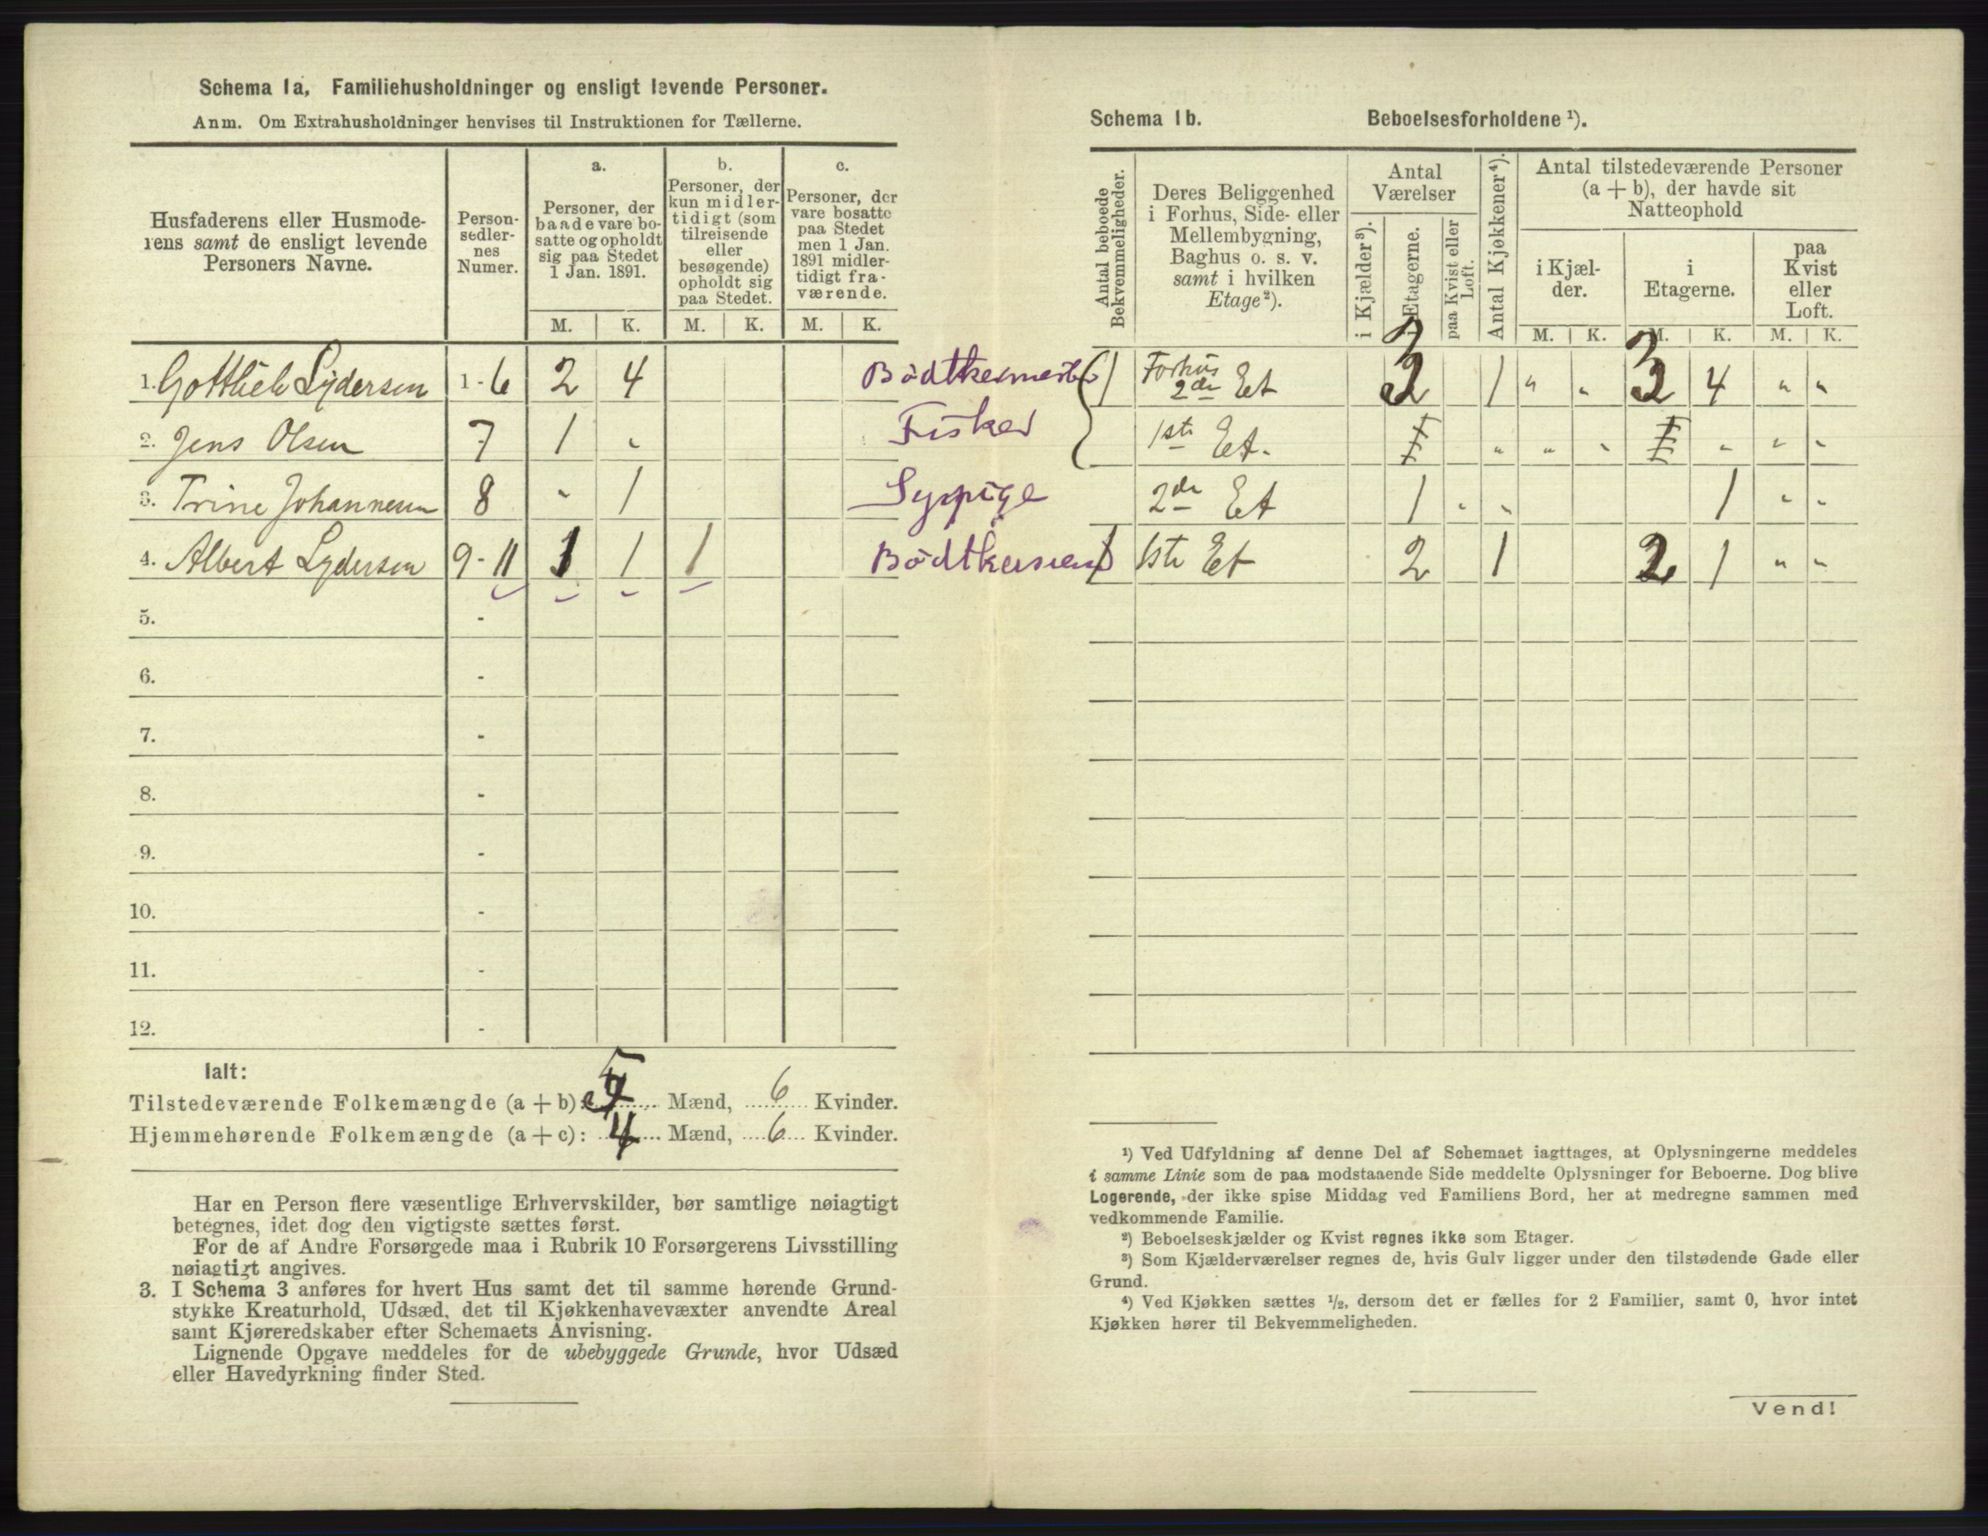 Schema 1a, Familiehusholdninger og ensligt levende Personer.
Anm. Om Extrahusholdninger henvises til Instruktionen for Tællerne.
Husfaderens eller Husmode-
rens samt de ensligt levende
Personers Navne.
Person-
sedler-
nes
Numer.
a.
Personer, der
baade vare bo-
satte og opholdt
sig paa Stedet
1 Jan. 1891.
b.
Personer, der
kun midler-
tidigt (som
tilreisende
eller
besøgende)
opholdt sig
paa Stedet.
c.
Personer, der
vare bosatte
paa Stedet
men 1 Jan.
1891 midler-
tidigt fra-
værende.
M. K. M. K. M. K.
1. Gottlieb Lydersen 1 - 6 2 4 Bødtkermester
2. Jens Olsen 7 1 " Fisker
3. Trine Johannesen 8 " 1 Sypige
4. Albert Lydersen 9 - 11 1 1 1 Bødtkersvend
5. -
6. -
7. -
8. -
9. -
10. -
11. -
12. -
Ialt:
Tilstedeværende Folkemængde (a + b): 5 Mænd, 6 Kvinder.
Hjemmehørende Folkemængde (a + c): 4 Mænd, 6 Kvinder.
Har en Person flere væsentlige Erhvervskilder, bør samtlige nøiagtigt
betegnes, idet dog den vigtigste sættes først.
For de af Andre Forsørgede maa i Rubrik 10 Forsørgerens Livsstilling
nøiagtigt angives.
3. I Schema 3 anføres for hvert Hus samt det til samme hørende Grund-
stykke Kreaturhold, Udsæd, det til Kjøkkenhavevæxter anvendte Areal
samt Kjøreredskaber efter Schemaets Anvisning.
Lignende Opgave meddeles for de ubebyggede Grunde, hvor Udsæd
eller Havedyrkning finder Sted.
Schema 1b. Beboelsesforholdene ¹).
Antal beboede
Bekvemmeligheder.
Deres Beliggenhed
i Forhus, Side- eller
Mellembygning,
Baghus o. s. v.
samt i hvilken
Etage²).
Antal
Værelser
i Kjælder³).
i Etagerne.
paa Kvist eller
Loft.
Antal Kjøkkener⁴).
Antal tilstedeværende Personer
(a + b), der havde sit
Natteophold
i Kjæl-
der.
i
Etagerne.
paa
Kvist
eller
Loft.
M. K. M. K. M. K.
1 Forhus
2de Et 3 1 " " 3 4 " "
1ste Et. " " " " " "
2de Et 1 " " 1 " "
1 1ste Et 2 1 2 1 " "
¹) Ved Udfyldning af denne Del af Schemaet iagttages, at Oplysningerne meddeles
i samme Linie som de paa modstaaende Side meddelte Oplysninger for Beboerne. Dog blive
Logerende, der ikke spise Middag ved Familiens Bord, her at medregne sammen med
vedkommende Familie.
²) Beboelseskjælder og Kvist regnes ikke som Etager.
³) Som Kjælderværelser regnes de, hvis Gulv ligger under den tilstødende Gade eller
Grund.
⁴) Ved Kjøkken sættes ½, dersom det er fælles for 2 Familier, samt 0, hvor intet
Kjøkken hører til Bekvemmeligheden.
Vend!